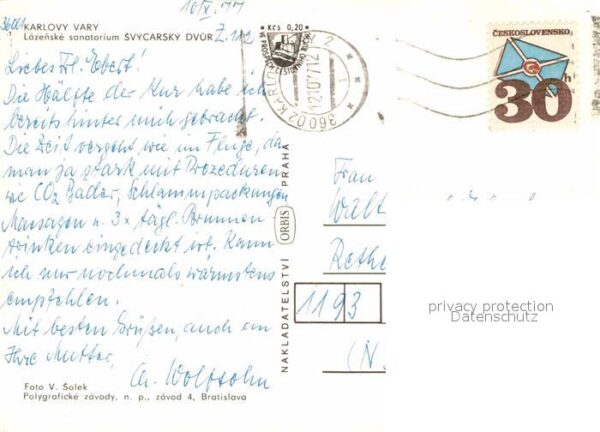 10/X. 77
36001
KARLOVY VARY
Lázeňské sanatorium ŠVÝCARSKÝ DVŮR Z. 112
Liebes Frl. Ebert!
Die Hälfte der Kur habe ich
bereits hinter mich gebracht.
Die Zeit vergeht wie im Fluge, da
man ja stark mit Prozeduren
wie CO₂ Bäder, Schlammpackungen
Massagen u. 3x tägl. Brunnen
trinken eingedeckt ist. Kann
ich nur nochmals wärmstens
empfehlen.
Mit besten Grüßen, auch an
Ihre Mutter,
Ch. Wolfsohn
Foto V. Šolek
Polygrafické závody, n. p., závod 4, Bratislava
Kčs 0,20
36002 KARLOVY VARY 2
12.10.77.12
NAKLADATELSTVÍ ORBIS PRAHA
ČESKOSLOVENSKO
30 h
Frau
Walt
Rethe
1193
(N.
privacy protection
Datenschutz